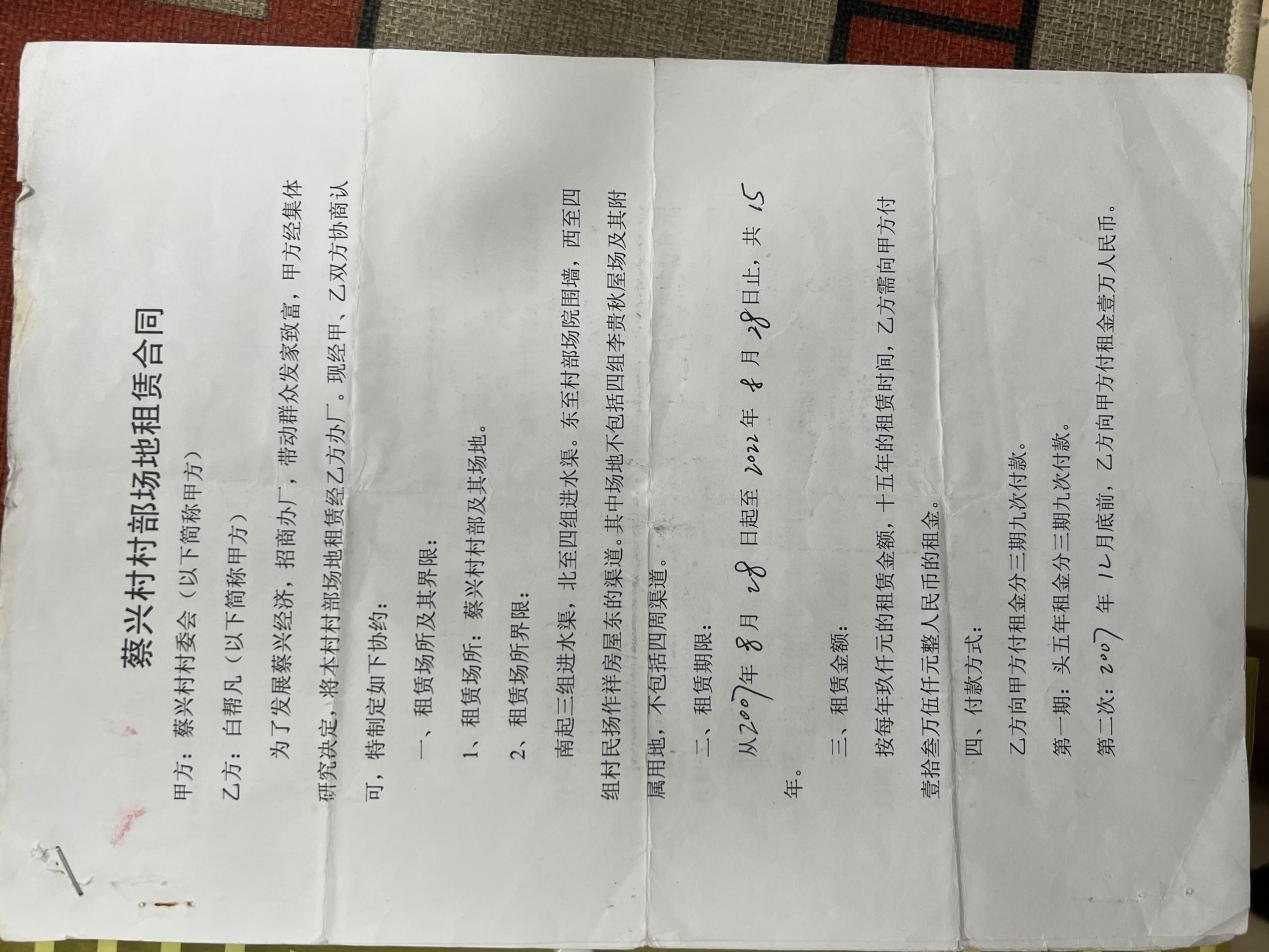 蔡兴村村部场地租赁合同
甲方：蔡兴村村委会（以下简称甲方）
乙方：白帮凡（以下简称甲方）
为了发展蔡兴经济，招商办厂，带动群众发家致富，甲方经集体
研究决定，将本村村部场地租赁经乙方办厂。现经甲、乙双方协商认
可，特制定如下协约：
一、租赁场所及其界限：
1、租赁场所：蔡兴村村部及其场地。
2、租赁场所界限：
南起三组进水渠，北至四组进水渠。东至村部场院围墙，西至四
组村民扬作祥房屋东的渠道。其中场地不包括四组李贵秋屋场及其附
属用地，不包括四周渠道。
二、租赁期限：
从2007年8月28日起至2022年8月28日止，共15
年。
三、租赁金额：
按每年玖仟元的租赁金额，十五年的租赁时间，乙方需向甲方付
壹拾叁万伍仟元整人民币的租金。
四、付款方式：
乙方向甲方付租金分三期九次付款。
第一期：头五年租金分三期九次付款。
第二次：2007年12月底前，乙方向甲方付租金壹万人民币。